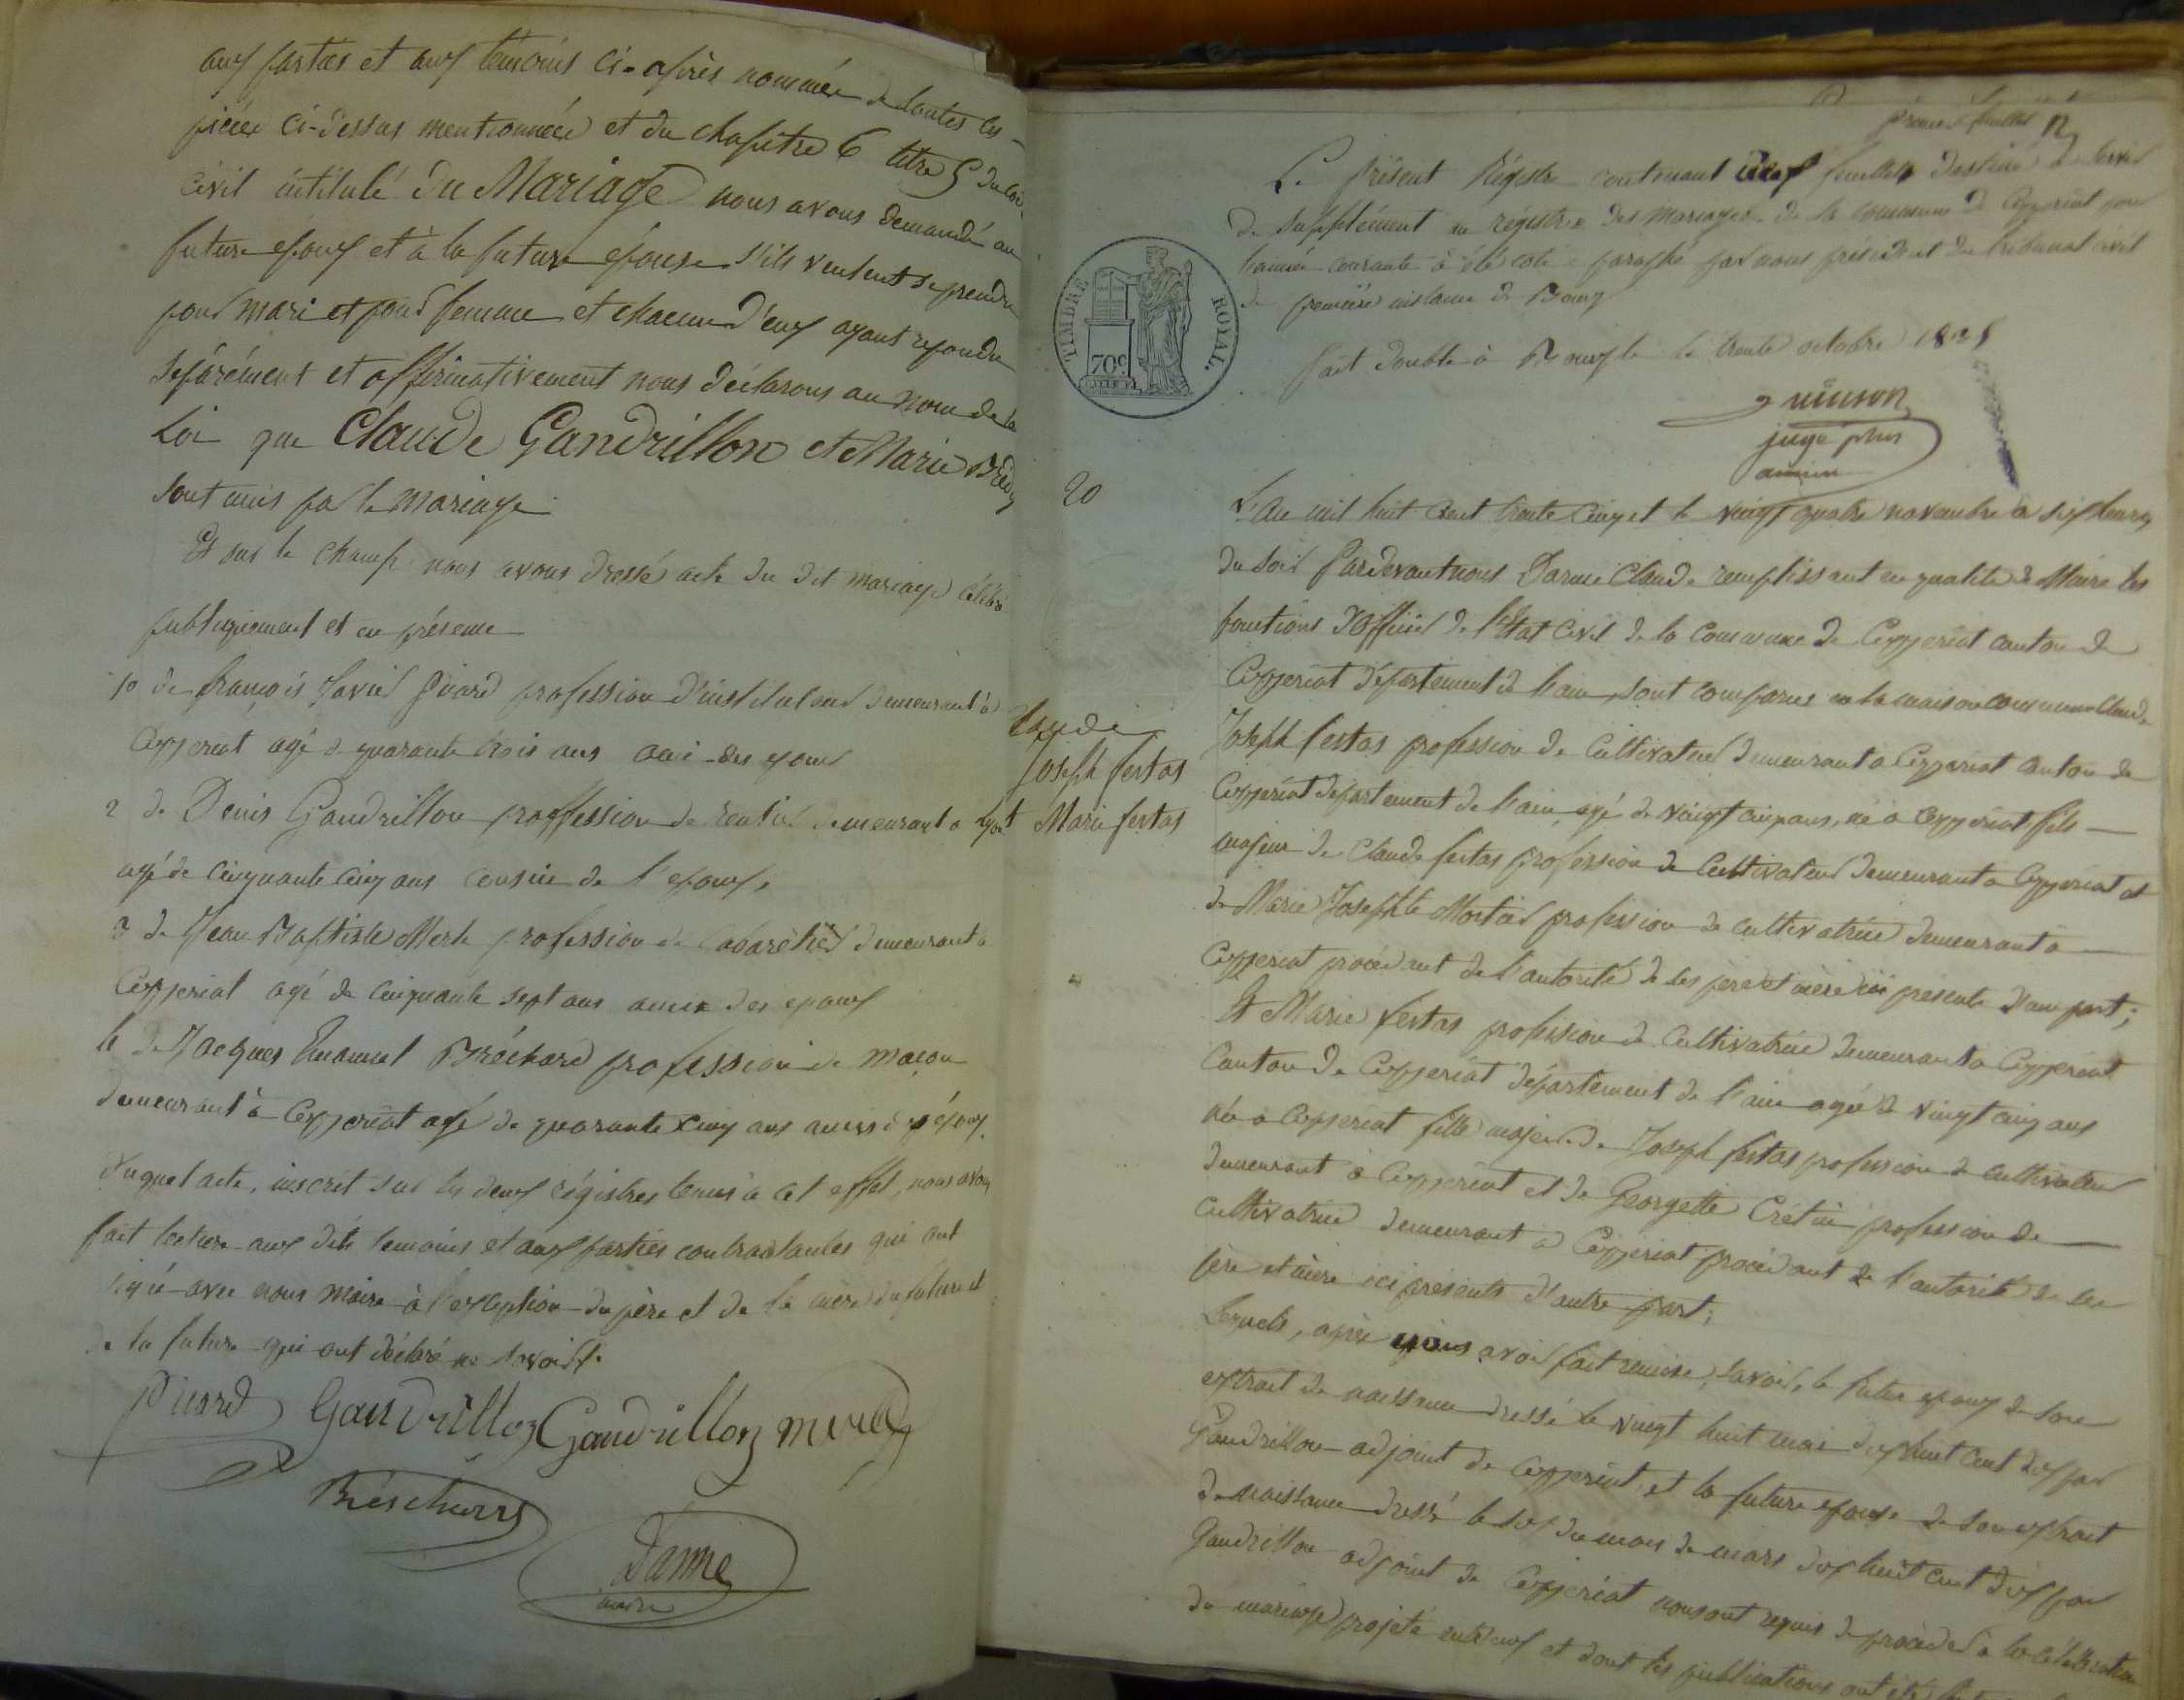 aux parties et aux temoins ci-après nommés de toutes les
pièces ci-dessus mentionnées et du chapitre 6 titre 5 du Code
civil intitulé du Mariage nous avons demandé au
future epoux et à la future épouse s'ils veulent se prendre
pour mari et pour femme et chacun d'eux ayant repondu
séparément et affirmativement nous déclarons au nom de la
Loi que Claude Gandrillon et Marie
sont unis par le mariage
Et sur le champ nous avons dressé acte du dit mariage célébré
publiquement et en présence
1º de françois Xavier Puard profession d'instituteur demeurant à
Ceyzeriat agé de quarante trois ans ami des epoux
2 de Denis Gandrillon proffession de rentier demeurant a
agé de cinquante cinq ans cousin de l'epoux,
3 de Jean Baptiste Merle profession de Cabarètier demeurant a
Ceyzeriat agé de cinquante sept ans amis des epoux
4e de Jacques Emanuel Bréchard profession de maçon
demeurant à Ceyzeriat agé de quarante cinq ans amis des époux.
Duquel acte, inscrit sur les deux régistres tenus à cet effet, nous avons
fait lecture aux dits temoins et aux parties contractantes qui ont
signé avec nous maire à l'exception du père et de la mère du future et
de la future qui ont déclaré ne savoir
Puard Gandrillon Gandrillon Merle
Bréschard
Darme
maire
premier feuillet
Le présent Régistre contenant feuillets destiné à servir
de supplément au régistre des mariages de la commune de Ceyzeriat pour
l'année courante à été coté paraphé par nous président du tribunal civil
de première instance de Bourg
fait double à Bourg le trente octobre 1835
TIMBRE ROYAL.
70c
juge plus
ancien
20
L'An mil huit cent trente cinq et le vingt quatre novembre a six heures
du soir Pardevant nous Darme Claude remplissant en qualité de Maire les
fonctions d'officier de l'Etat civil de la Commune de Ceyzeriat canton de
Ceyzeriat département de l'ain, sont comparus en la maison commune Claude
Joseph fertas profession de Cultivateur demeurant a Ceyzeriat canton de
Ceyzeriat département de l'ain, agé de vingt cinq ans, né a Ceyzeriat fils
majeur de Claude fertas profession de Cultivateur demeurant a Ceyzeriat et
de Marie Josephte Mortier profession de cultivatrice demeurant a
Ceyzeriat procédant de l'autorité de ses père et mère ici présents d'une part;
Et Marie fertas profision de Cultivatrice demeurant a Ceyzeriat
Canton de Ceyzeriat département de l'ain agée de vingt cinq ans
née a Ceyzeriat fille majeure de Joseph fertas profession de cultivateur
demeurant à Ceyzeriat et de Georgette Crétin profession de
cultivatrice demeurant a Ceyzeriat procédant de l'autorité de ses
père et mère ici présents d'autre part;
Lesquels, après nous avoir fait remise, savoir, le futur epoux de son
extrait de naissance dressé le vingt huit mai dix huit cent dix par
Gandrillon adjoint de Ceyzeriat et la future epouse de son extrait
de naissance dressé le dix du mois de mars dix huit cent dix par
Gandrillon adjoint de Ceyzeriat nous ont requis de procéder à la célébration
du mariage projeté entr'eux et dont les publications ont été
Claude
Joseph fertas
et Marie fertas